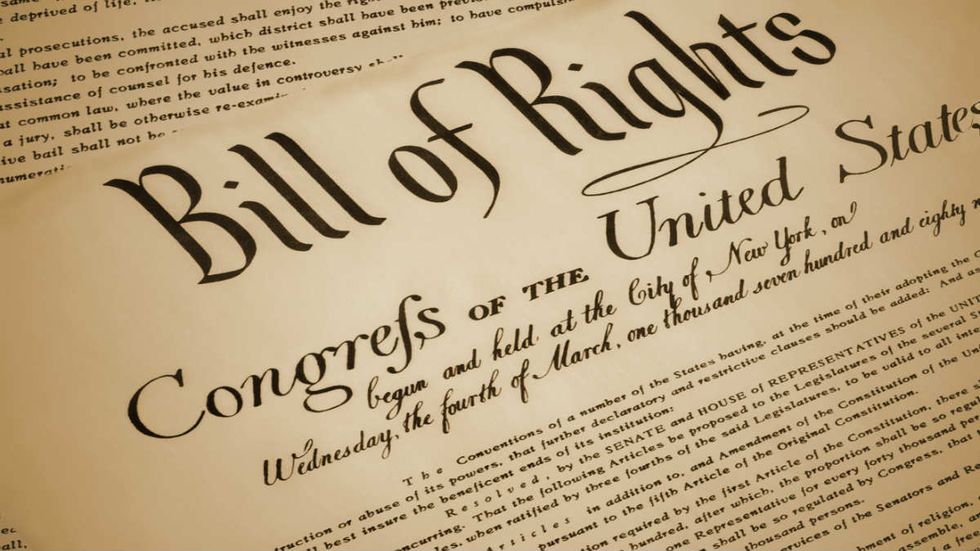 same
deprived of life,
al prosecutions, the accused shall enjoy the
hall have been committed, which district shall have been
sation; to be confronted with the witnesses against him; to have
ssistance of counsel for his defence.
at common law, where the value in controversy
a jury, shall be otherwise
ive bail shall not be
Bill of Rights
Congreſs OF THE United States
begun and held at the City of New York, on
Wednesday, the fourth of March, one thousand seven hundred and eighty
The Conventions of a number of the States having, at the time of their adopting the
ruction or abuse of its powers, that further declaratory and restrictive clauses should be added: And
best insure the beneficent ends of its institution:
Resolved, by the SENATE and HOUSE of REPRESENTATIVES of the
concurring. That the following Articles be proposed to the Legislatures of the several
when ratified by three fourths of the said Legislatures, to be valid to all
in addition to, and Amendment of the Constitution of the
pursuant to the fifth Article of the Original Constitution.
required by the first Article of the Constitution, there
hundred, after which, the proportion shall be so
one Representative for every forty thousand
shall be so regulated by Congress, that
thousand persons.
services of the Senators and
of religion,
assemble,